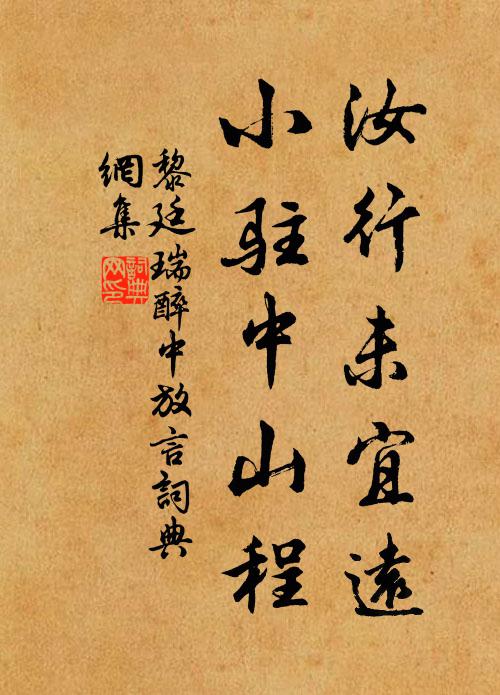 汝行未宜遠
小駐中山程
黎廷瑞醉中放言詞典
網集
詞典網印